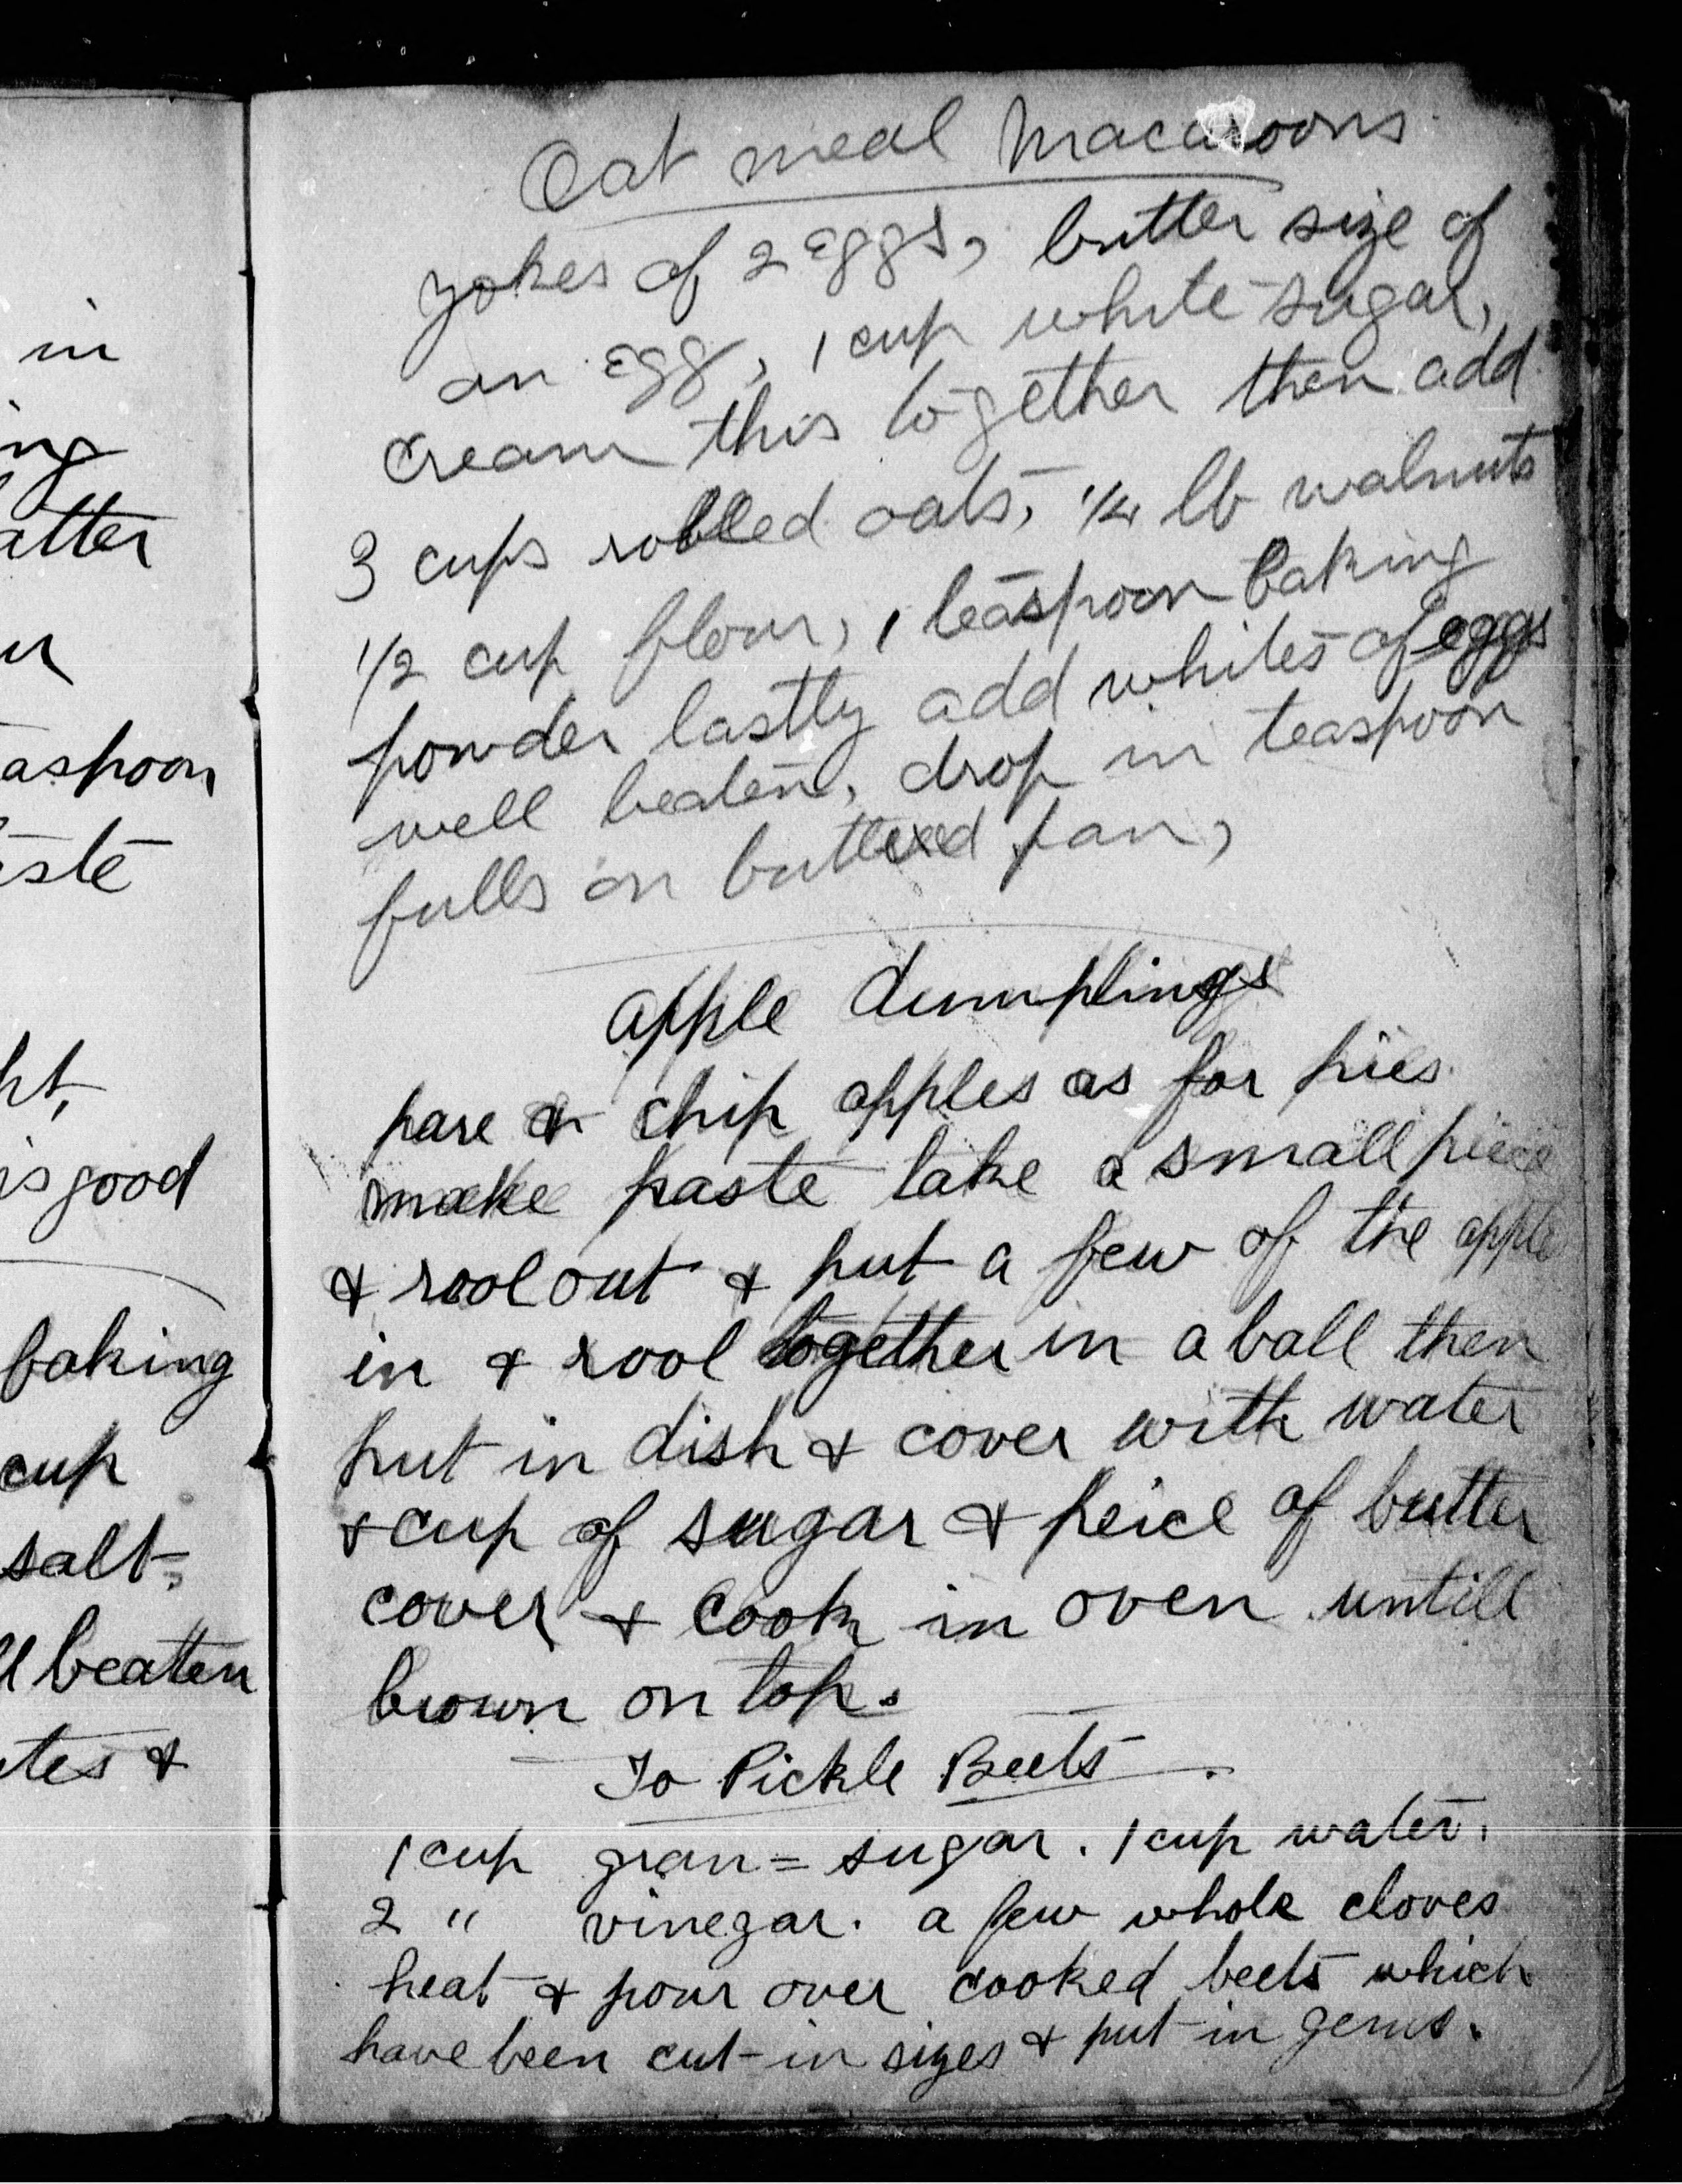 in
ing
atter
ur
aspoon
iste
ht,
is good
baking
cup
salt,
ll beaten
utes &
Oat meal Macaroons
yokes of 2 eggs, butter size of
an egg, 1 cup white sugar,
cream this together then add
3 cups rolled oats, 1/4 lb walnuts
1/2 cup flour, 1 teaspoon baking
powder lastly add whites of eggs
well beaten, drop in teaspoon
fulls on buttered pan,
apple dumplings
pare & chip apples as for pies
make paste take a small piece
& rool out & put a few of the apple
in & rool together in a ball then
put in dish & cover with water
& cup of sugar & peice of butter
cover & cook in oven untill
brown on top.
To Pickle Beets.
1 cup gran= sugar. 1 cup water.
2 " vinegar. a few whole cloves
heat & pour over cooked beets which
have been cut in sizes & put in gems.